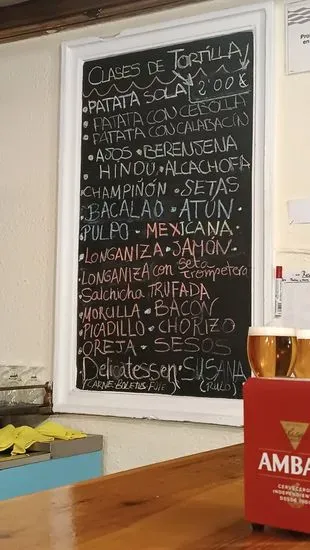 CLASES DE TORTILLA
• PATATA SOLA 2'00 €
• PATATA CON CEBOLLA
• PATATA CON CALABACÍN
• AJOS • BERENJENA
HINDU • ALCACHOFA
• CHAMPIÑÓN • SETAS
• BACALAO • ATÚN •
PULPO • MEXICANA
• LONGANIZA • JAMÓN •
• LONGANIZA con seta trompetera
• Salchicha TRUFADA
• MORCILLA • BACON
• PICADILLO • CHORIZO
• OREJA • SESOS
Delicatessen • SUSANA
CARNE BOLETUS FUIE
AMBA
CERVECEROS
INDEPENDIENTES